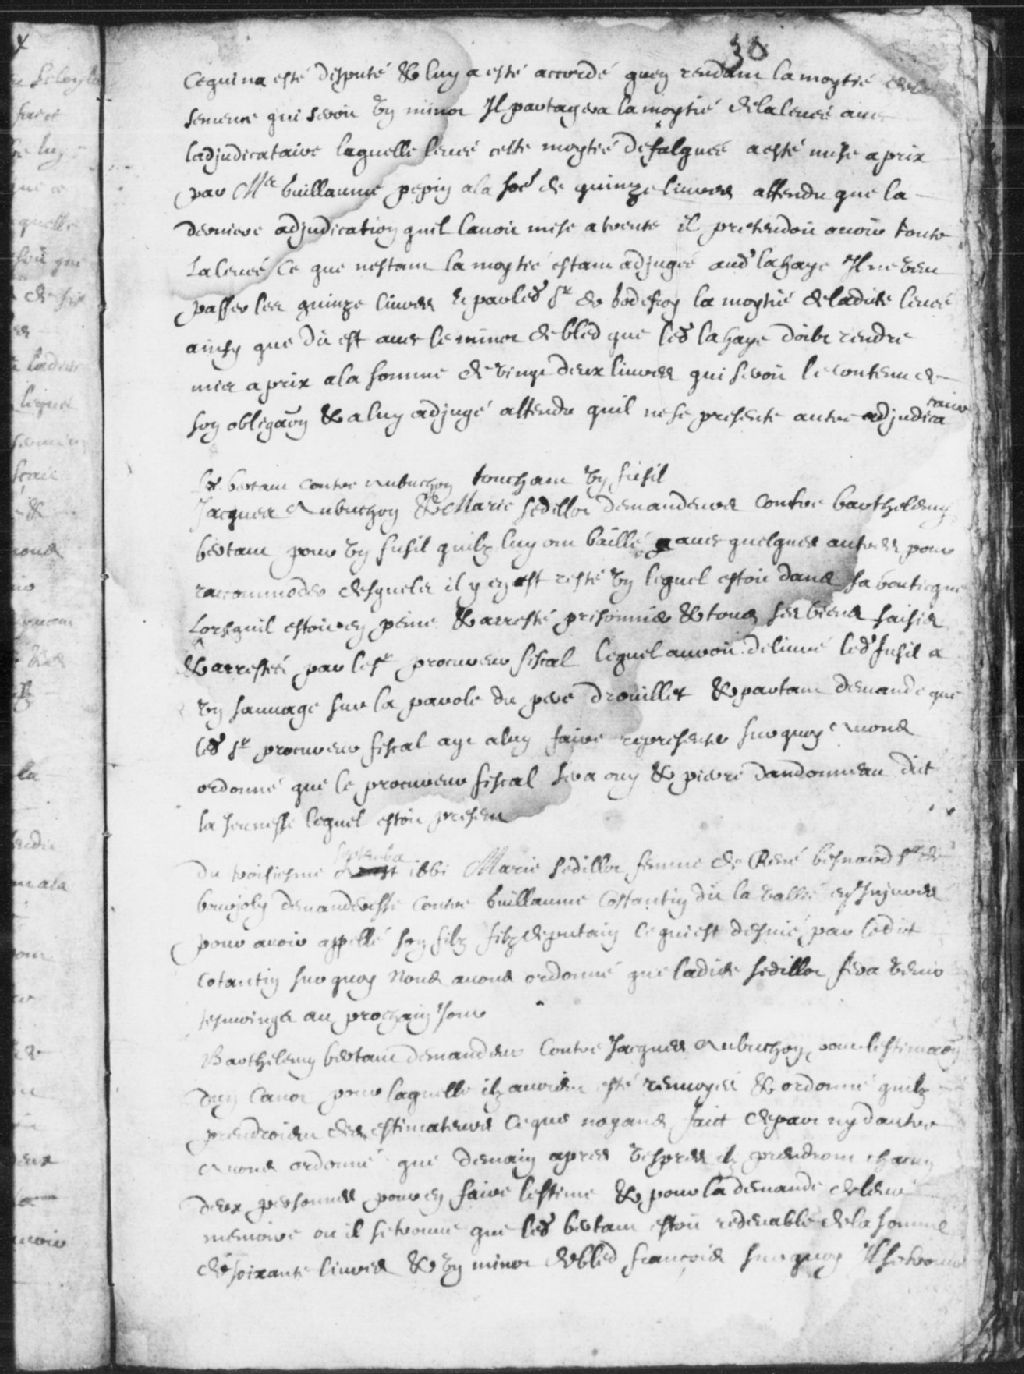 30
Ce qui na esté disputé & luy a esté accordé quen rendant la moytié de la
semence qui seroit un minot Il partagera la moytié de la levée avec
ladjudicataire laquelle levée cette moytié defalquée a esté mise a prix
par Mre Guillaume pepin a la soe de quinze livres attendu que la
derniere adjudication quil lavoit mise a trente il pretendoit avoir toute
La levée Ce que nestant la moytié estant adjugée aud lahaye Il ne veu
passer les quinze livres Et par led sr de Godefroy la moytié de ladite levée
ainsy que dit est avec le minot de bled que led lahaye doibt rendre
mise a prix a la somme de vingt deux livres qui seroit le contenu de
son obligaon & a luy adjugé attendu quil ne se presente autre adjudica
taire
bertaut contre Aubuchon touchant un fusil
Jacques Aubuchon & Marie Sedillot demandeurs contre barthelemy
bertaut pour un fusil quilz luy ont baillé avec quelques autres pour
racommoder desquels il y en est resté un lequel estoit dans sa bouticque
Lorsquil estoit en peine & arresté prisonnier & tous ses biens saisis
& arrestés par le sr procureur fiscal lequel auroit delivré led fusil a
un sauvage sur la parole du pere Drouillet & partant demande que
led sr procureur fiscal aye a luy faire representer surquoy Avons
ordonné que le procureur fiscal sera ouy & pierre Dandonneau dit
la Jeunesse lequel estoit present
Du troisiesme septembre 1661 Marie Sedillot femme de René besnard sr de
bourjoly demanderesse contre Guillaume Costantin dit la vallée
pour avoir appellé son filz filz de putain ce qui est desnié par ledict
Cotantin surquoy Nous avons ordonné que ladite Sedillot fera venir
tesmoings au prochain Jour
Barthelemy bertaut demandeur Contre Jacques Aubuchon pour lestimaon
dun Canot pour laquelle ilz auroient esté renvoyés & ordonné quilz
prendroient des estimateurs Ce que nayans faict de part ny dautre
Avons ordonné que demain apres vespres ilz prendront chacun
deux personnes pour en faire lestime & pour la demande de leur
memoire ou il se trouve que led bertaut estoit redevable de la somme
de soixante livres & un minot de bled françois surquoy Il se trouve